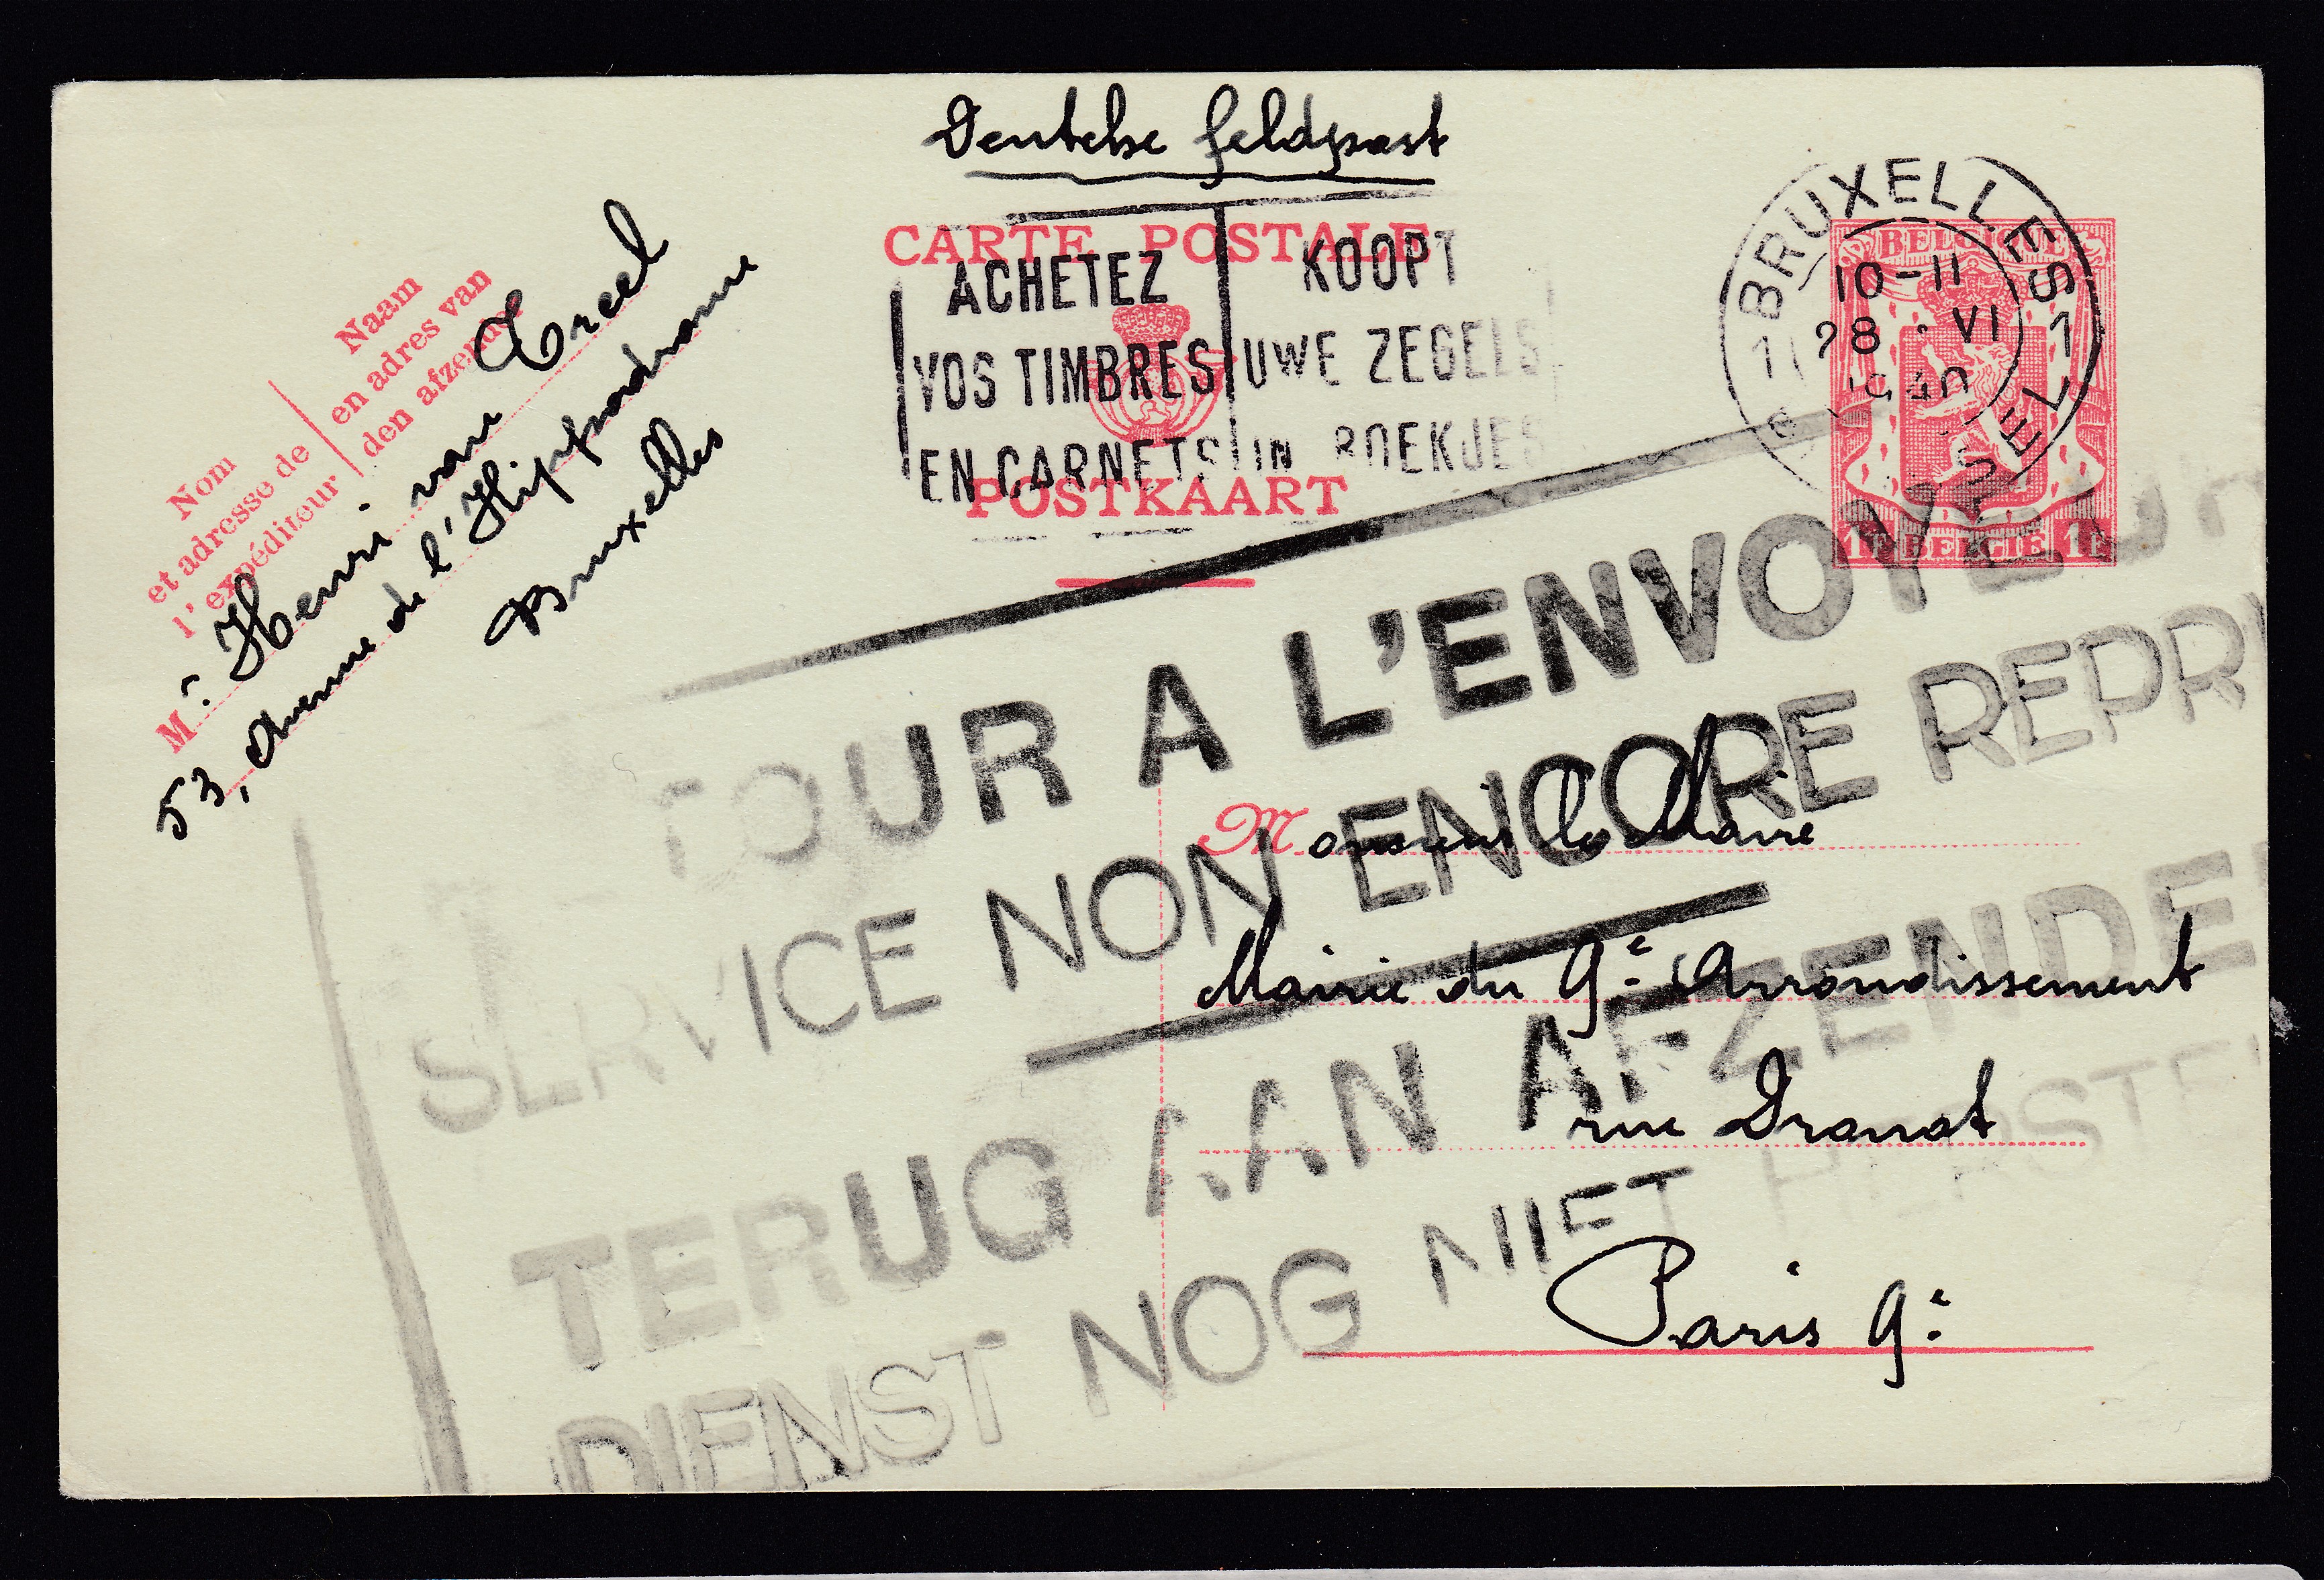 Deutche feldpost
CARTE POSTALE
POSTKAART
ACHETEZ
VOS TIMBRES
EN CARNETS
KOOPT
UWE ZEGELS
IN BOEKJES
BRUXELLES 1
10-11
28 VI
1940
BRUSSEL
BELGIQUE
1F BELGIE 1F
Nom
et adresse de
l'expéditeur
Naam
en adres van
den afzender
M. Henri van Treel
53, Avenue de l'Hippodrome
Bruxelles
TOUR A L'ENVOYEUR
SERVICE NON ENCORE REPRI
TERUG AAN AFZENDE
DIENST NOG NIET HERSTE
Monsieur le Maire
Mairie du 9e Arrondissement
rue Drouot
Paris 9e